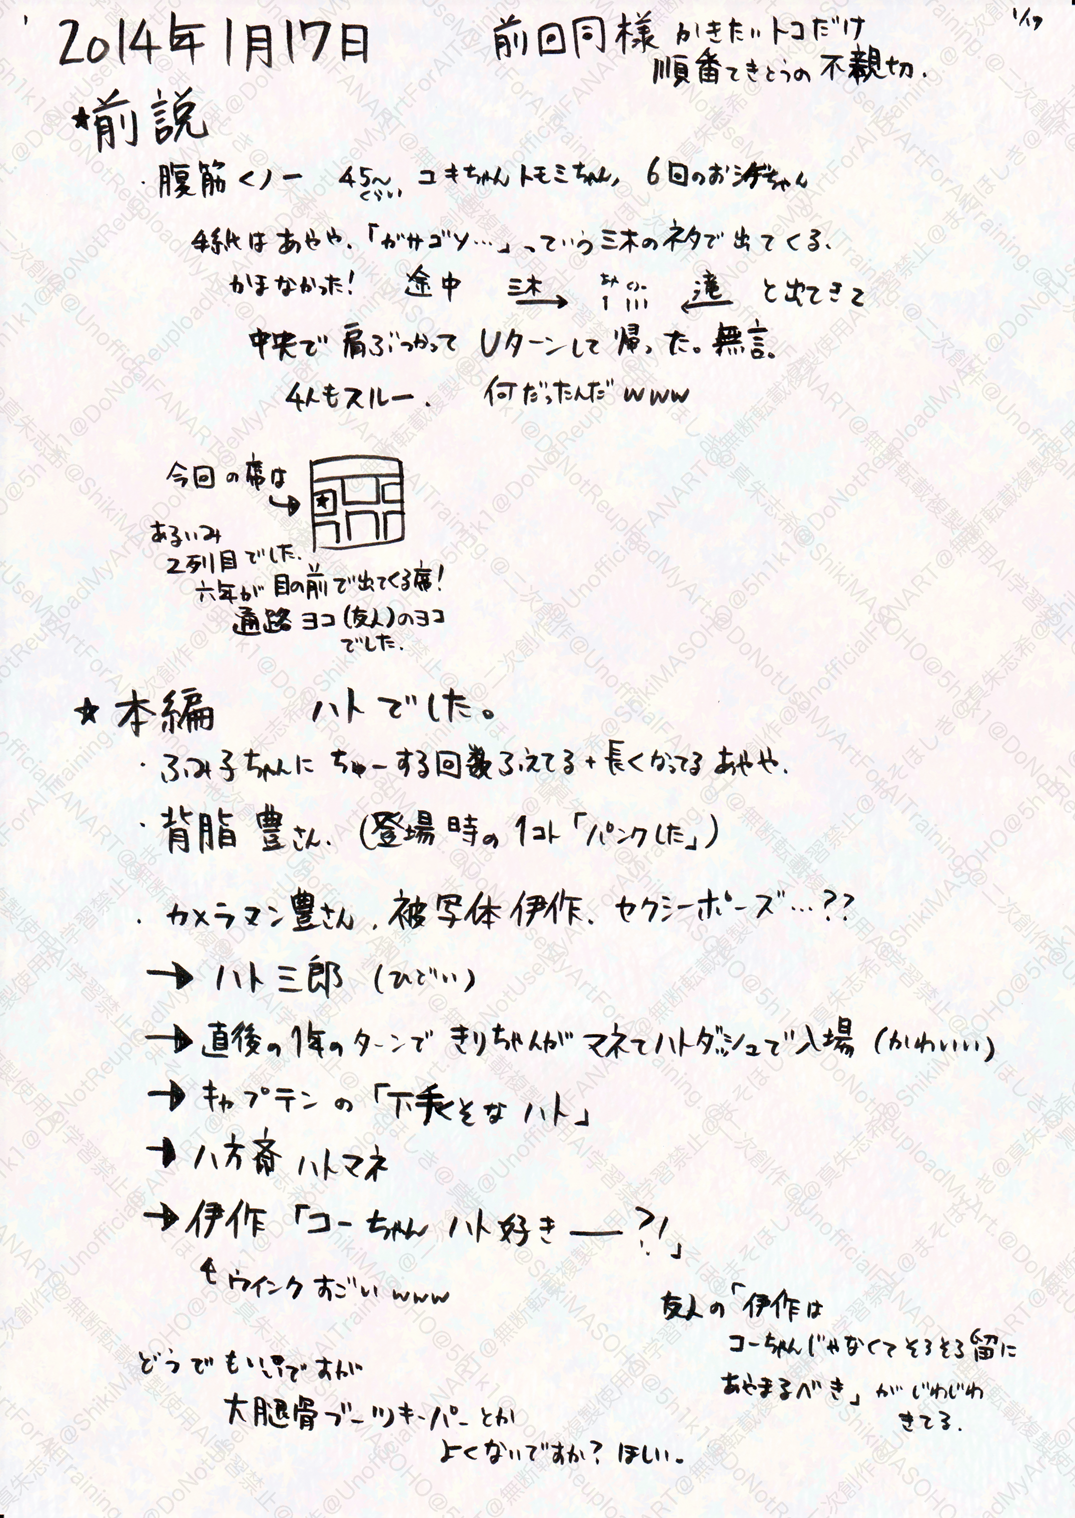 1/17
2014年1月17日
前回同様 かきたいトコだけ
順番てきとうの不親切.
★前説
・腹筋くノ一 45〜くらい ユキちゃんトモミちゃん, 6回のおシゲちゃん
4年代はあやや.「ガサゴソ…」っていう三木のネタで出てくる.
かまなかった! 途中 三木→ ←滝 と出てきて
中央で肩ぶつかってUターンして帰った。無言。
4人もスルー. 何だったんだwww
今回の席は
あるいみ
2列目でした.
六年が目の前で出てくる席!
通路ヨコ(友人)のヨコ
でした.
★本編 ハトでした。
・ふみ子ちゃんにちゅーする回数ふえてる+長くなってるあやや.
・背脂豊さん.(登場時の1コト「パンクした」)
・カメラマン豊さん.被写体伊作、セクシーポーズ…??
→ハト三郎(ひどい)
→直後の1年のターンできりちゃんがマネてハトダッシュで入場(かわいい)
→キャプテンの「下手くそなハト」
→八方斎ハトマネ
→伊作「コーちゃんハト好きー?!」
ウインクすごいwww
友人の「伊作は
コーちゃんじゃなくてそろそろ留に
あやまるべき」がじわじわ
きてる.
どうでもいいですが
大腿骨ブーツキーパーとか
よくないですか?ほしい。
@DoNotReuploadMyArt
@DoNotUseMyArtForAITraining
@UnofficialFANART
@ShikiMASOHO
@5h1k1
@無断転載複製使用AI学習禁止
@二次創作
@真朱志希
@そほしき